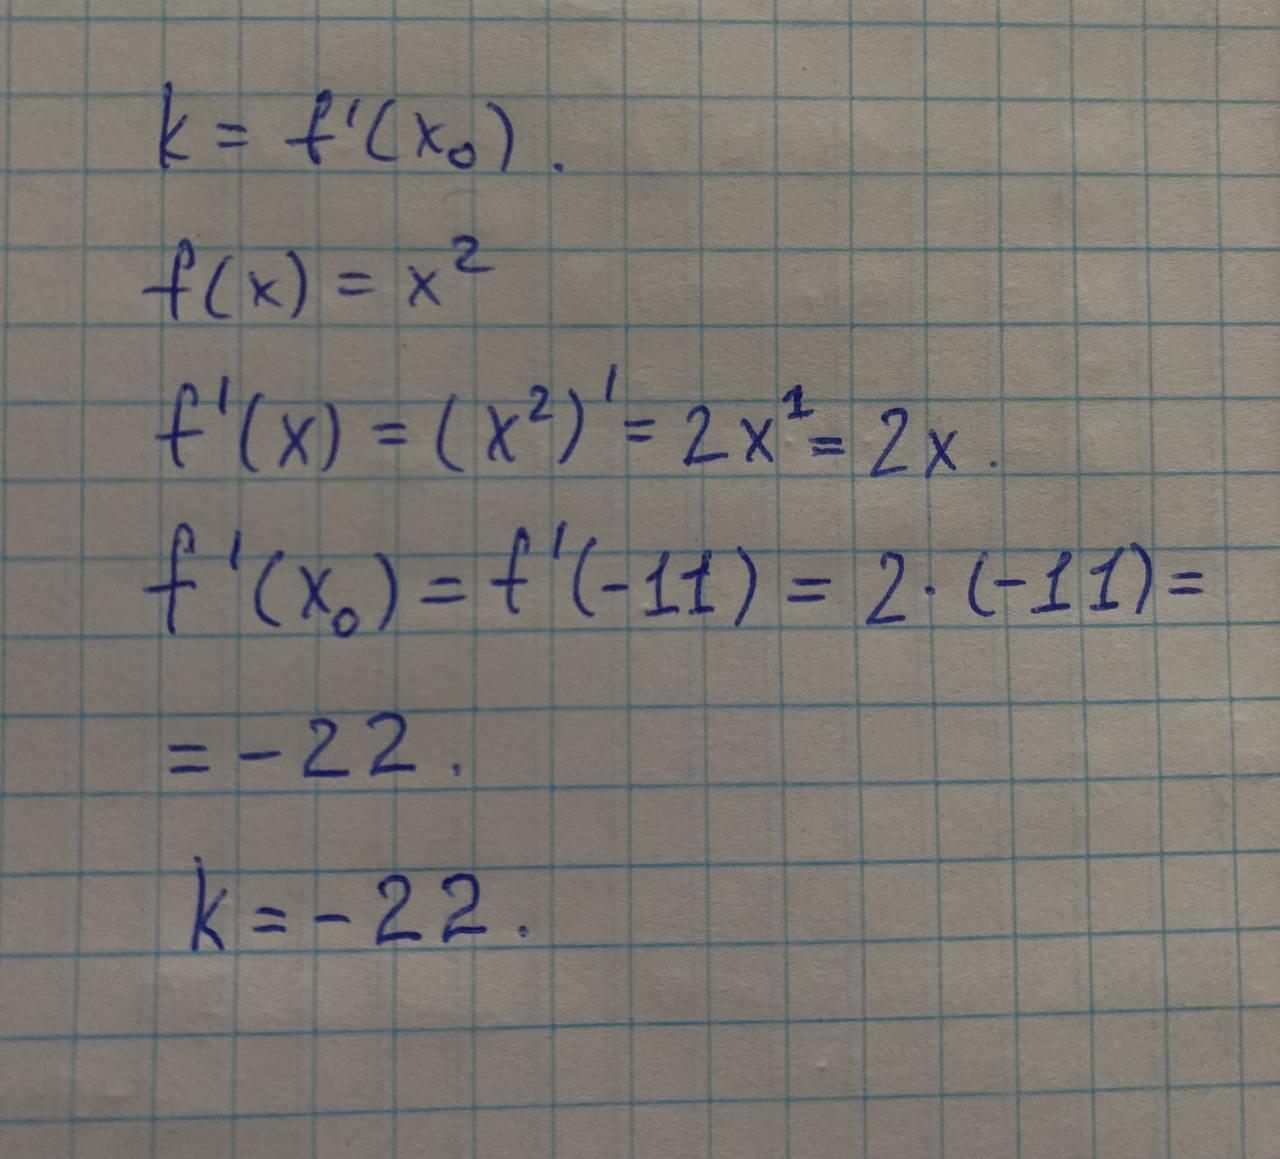 k = f'(x₀).
f(x) = x²
f'(x) = (x²)' = 2x¹ = 2x.
f'(x₀) = f'(-11) = 2·(-11) =
= -22.
k = -22.